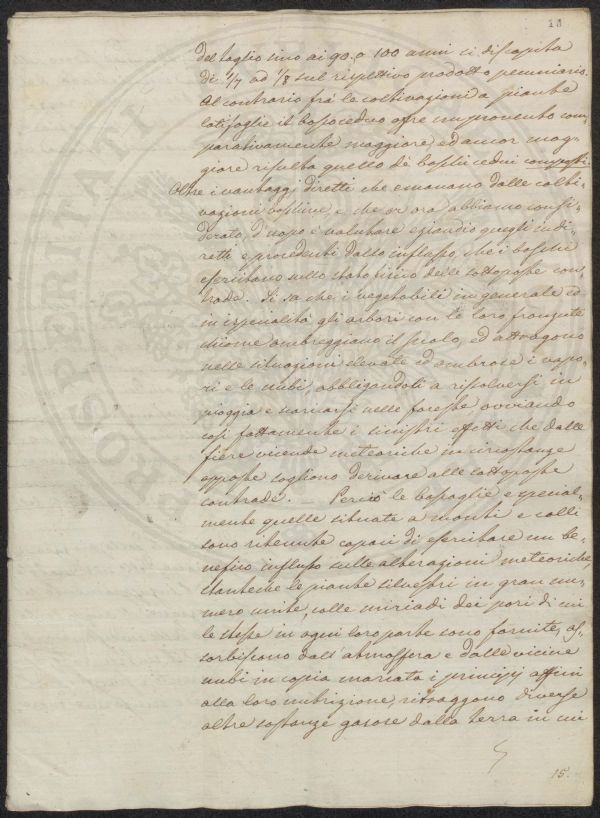 18
del taglio sino ai 90. o 100 anni si discapita
di 1/7 ad 1/8 sul rispettivo prodotto pecuniario.
Al contrario frà le coltivazioni a piante
latifoglie il bosco ceduo offre un provento com
parativamente maggiore, ed ancor mag=
giore risulta quello dè boschi cedui composti.
Oltre i vantaggi diretti che emanano dalle colti=
vazioni boschive, e che or ora abbiamo consi=
derato, d'uopo è valutare eziandio quegli indi=
retti e procedenti dallo influsso, che i boschi
esercitano sullo stato fisico delle sottoposte con
trade. Si sa che i vegetabili in generale ed
in ispecialità gli arbori con le loro fronzute
chiome ombreggiano il suolo, ed attraggono
nelle situazioni elevate ed ombrose i vapo=
ri e le nubi, obbligandoli a risolversi in
pioggia e scaricarsi nelle foreste ovviando
così fattamente i sinistri effetti che dalle
fiere vicende meteoriche in circostanze
opposte sogliono derivare alle sottoposte
contrade. Perciò le boscaglie e special=
mente quelle situate a monti e colli
sono ritenute capaci di esercitare un be=
nefico influsso sulle alterazioni meteoriche,
stanteche le piante silvestri in gran nu=
mero unite, colle miriadi dei pori di cui
le stesse in ogni loro parte sono fornite, as=
sorbiscono dall'atmosfera e dalle vicine
nubi in copia i principj affini
alla loro nutrizione, ritraggono diverse
altre sostanze gasose dalla terra in cui
15.
PROSPERITATI